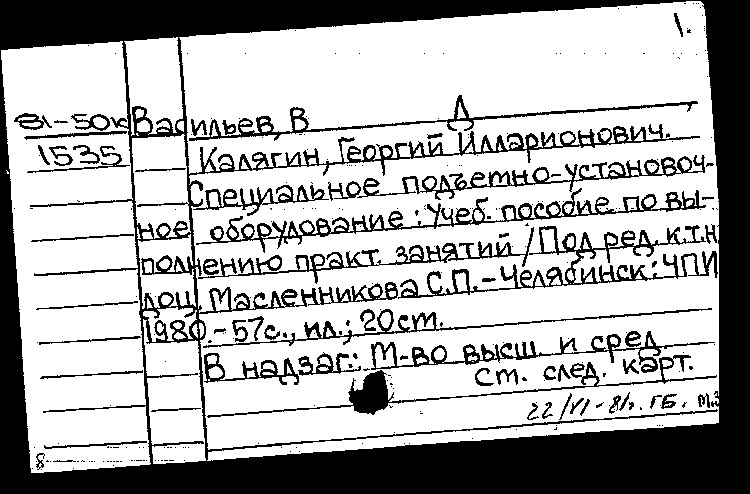 1.
81-50к Васильев, В Д ,
1535 Калягин, Георгий Илларионович.
Специальное подъетно-установоч-
ное оборудование: Учеб. пособие по вы-
полнению практ. занятий / Под ред. к.т.н
доц. Масленникова С.П. - Челябинск: ЧПИ
1980. - 57с., ил.; 20ст.
В надзаг.: М-во высш. и сред.
Ст. след. карт.
22/VI-81г. ГБ. т.3
8